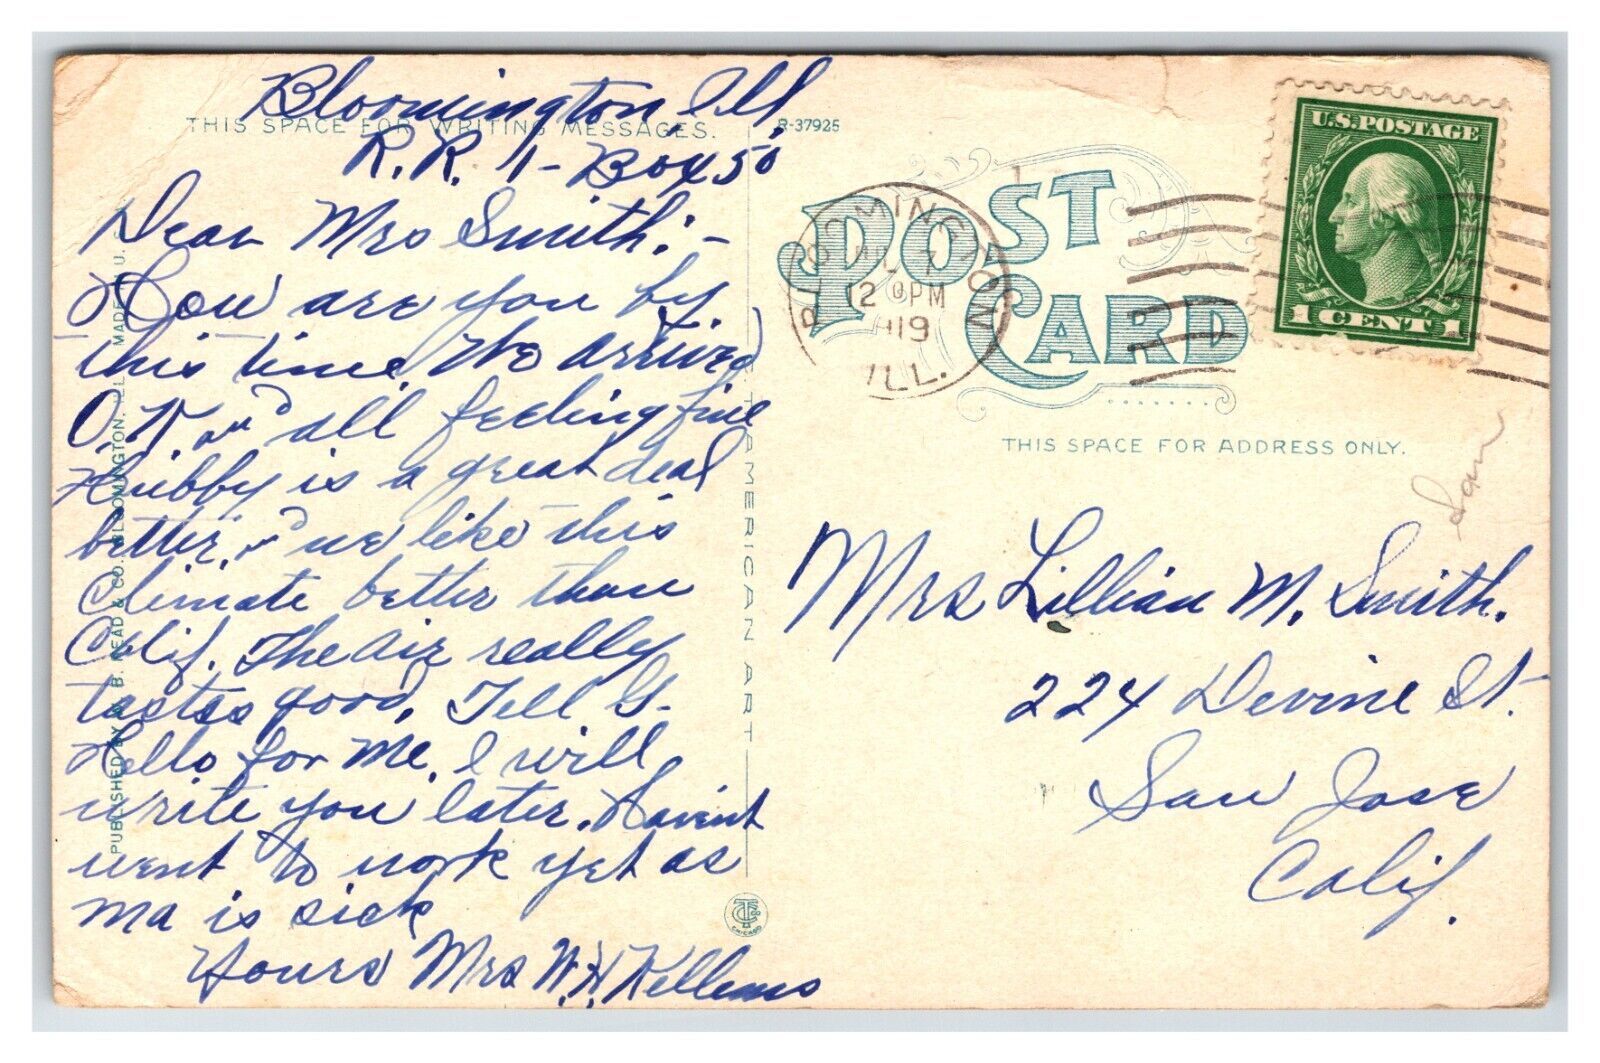 Bloomington, Ill,
THIS SPACE FOR WRITING MESSAGES.
R.R. 1 - Box 50
Dear Mrs Smith: -
How are you by
this time. We arrived
O.K. and all feeling fine
Hubby is a great deal
better, and we like this
climate better than
Calif. The air really
tastes good, Tell G.
Hello for me, I will
write you later. Havent
went to work yet as
Ma is sick
Yours Mrs W.H. Kellems
PUBLISHED BY B. READ & CO. BLOOMINGTON, ILL. MADE U.S.
C.T. AMERICAN ART
R-37925
POST CARD
BLOOMINGTON
7
12 PM
1919
ILL.
U.S. POSTAGE
1 CENT 1
THIS SPACE FOR ADDRESS ONLY.
Mrs Lillian M. Smith.
224 Devine St.
San Jose
Calif.
CHICAGO